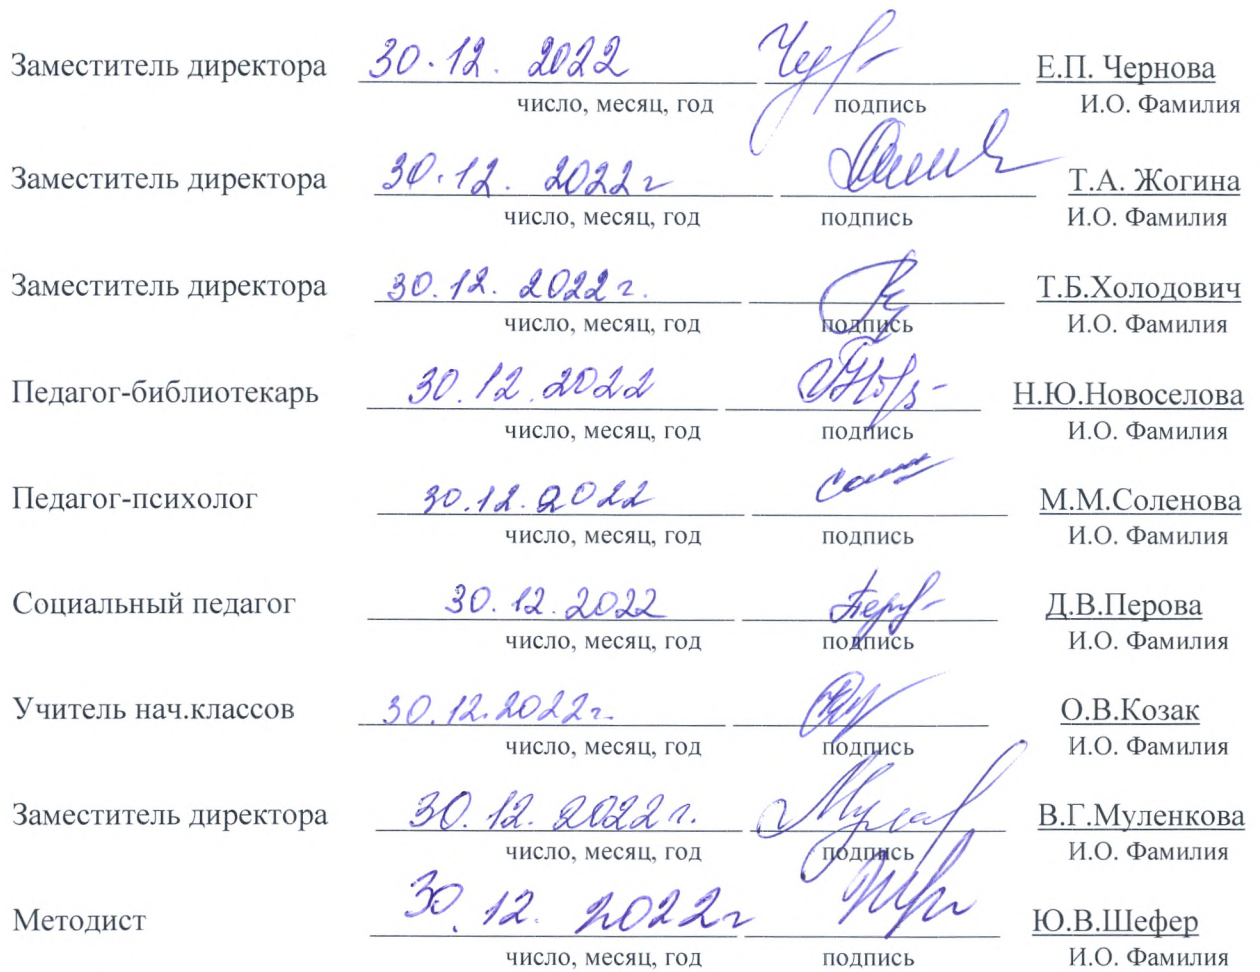 Заместитель директора 30.12. 2022 Е.П. Чернова
число, месяц, год подпись И.О. Фамилия
Заместитель директора 30.12. 2022 г Т.А. Жогина
число, месяц, год подпись И.О. Фамилия
Заместитель директора 30.12. 2022 г. Т.Б.Холодович
число, месяц, год подпись И.О. Фамилия
Педагог-библиотекарь 30.12.2022 Н.Ю.Новоселова
число, месяц, год подпись И.О. Фамилия
Педагог-психолог 30.12.2022 М.М.Соленова
число, месяц, год подпись И.О. Фамилия
Социальный педагог 30.12.2022 Д.В.Перова
число, месяц, год подпись И.О. Фамилия
Учитель нач.классов 30.12.2022г. О.В.Козак
число, месяц, год подпись И.О. Фамилия
Заместитель директора 30.12. 2022 г. В.Г.Муленкова
число, месяц, год подпись И.О. Фамилия
Методист 30.12. 2022г Ю.В.Шефер
число, месяц, год подпись И.О. Фамилия